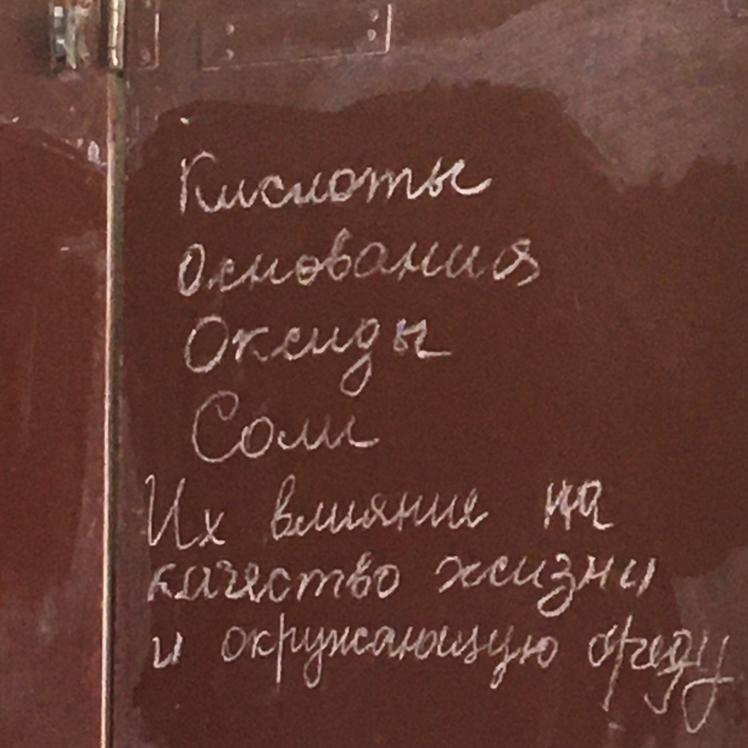 Кислоты
Основания
Оксиды
Соли
Их влияние на
качество жизни
и окружающую среду